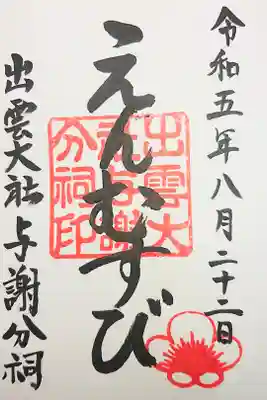 令和五年八月二十二日
えんむすび
出雲大
社与謝
分祠印
出雲大社与謝分祠